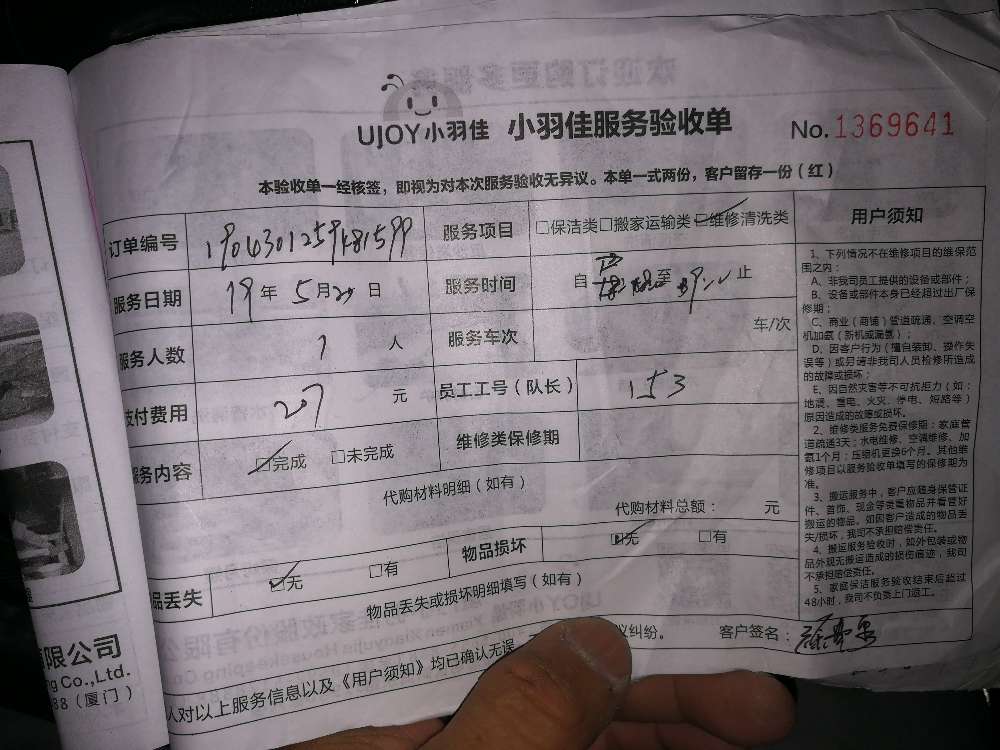 UJOY小羽佳 小羽佳服务验收单 No.1369641
本验收单一经核签，即视为对本次服务验收无异议。本单一式两份，客户留存一份（红）
订单编号 服务项目 □保洁类□搬家运输类☑维修清洗类
服务日期 19年5月 日 服务时间 自 至 止
服务人数 1 人 服务车次 车/次
支付费用 207 元 员工工号（队长） 153
服务内容 ☑完成 □未完成 维修类保修期
代购材料明细（如有）
代购材料总额： 元
品丢失 ☑无 □有 物品损坏 ☑无 □有
物品丢失或损坏明细填写（如有）
人对以上服务信息以及《用户须知》均已确认无误 议纠纷。 客户签名：
用户须知
1、下列情况不在维修项目的维保范
围之内：
A、非我司员工提供的设备或部件；
B、设备或部件本身已经超过出厂保
修期；
C、商业（商铺）管道疏通、空调空
机加氨（新机或漏氨）；
D、因客户行为（擅自装卸、操作失
误等）或另请非我司人员检修所造成
的故障或损坏；
E、因自然灾害等不可抗拒力（如：
地震、雷电、火灾、停电、短路等）
原因造成的故障或损坏。
2、维修类服务免费保修期：家庭管
道疏通3天；水电维修、空调维修、加
氨1个月；压缩机更换6个月。其他维
修项目以服务验收单填写的保修期为
准。
3、搬运服务中，客户应随身保管证
件、首饰、现金等贵重物品并看管好
搬运的物品，如因客户造成的物品丢
失/损坏，我司不承担赔偿责任。
4、搬运服务验收时，如外包装或物
品外观无搬运造成的损伤痕迹，我司
不承担赔偿责任。
5、家庭保洁服务验收结束后超过
48小时，我司不负责上门返工。
有限公司
ng Co.,Ltd.
88（厦门）